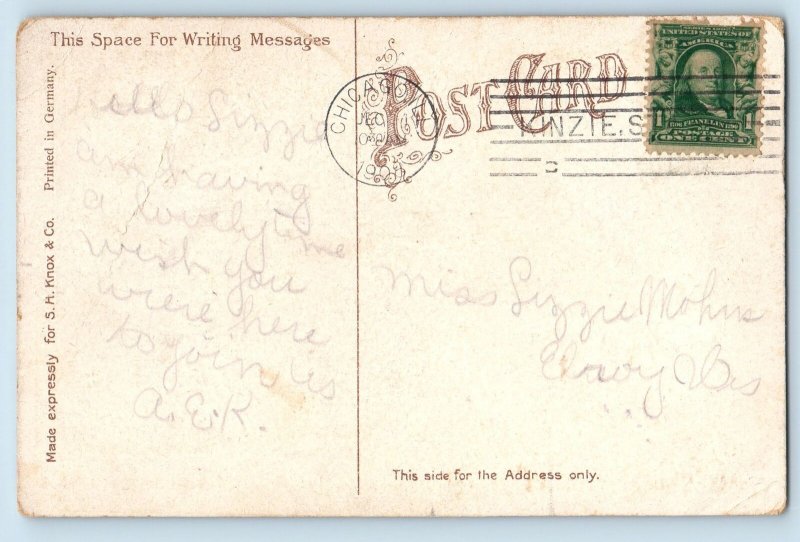 This Space For Writing Messages
Hello Lizzie
am having
a lovely time
wish you
were here
to join us
A.E.K.
Made expressly for S. H. Knox & Co. Printed in Germany.
POST CARD
CHICAGO, ILL.
190
KINZIE, S
SERIES 1902
UNITED STATES OF
AMERICA
1706 FRANKLIN 1790
1 1
POSTAGE
ONE CENT
Miss Lizzie Mohns
Wis
This side for the Address only.